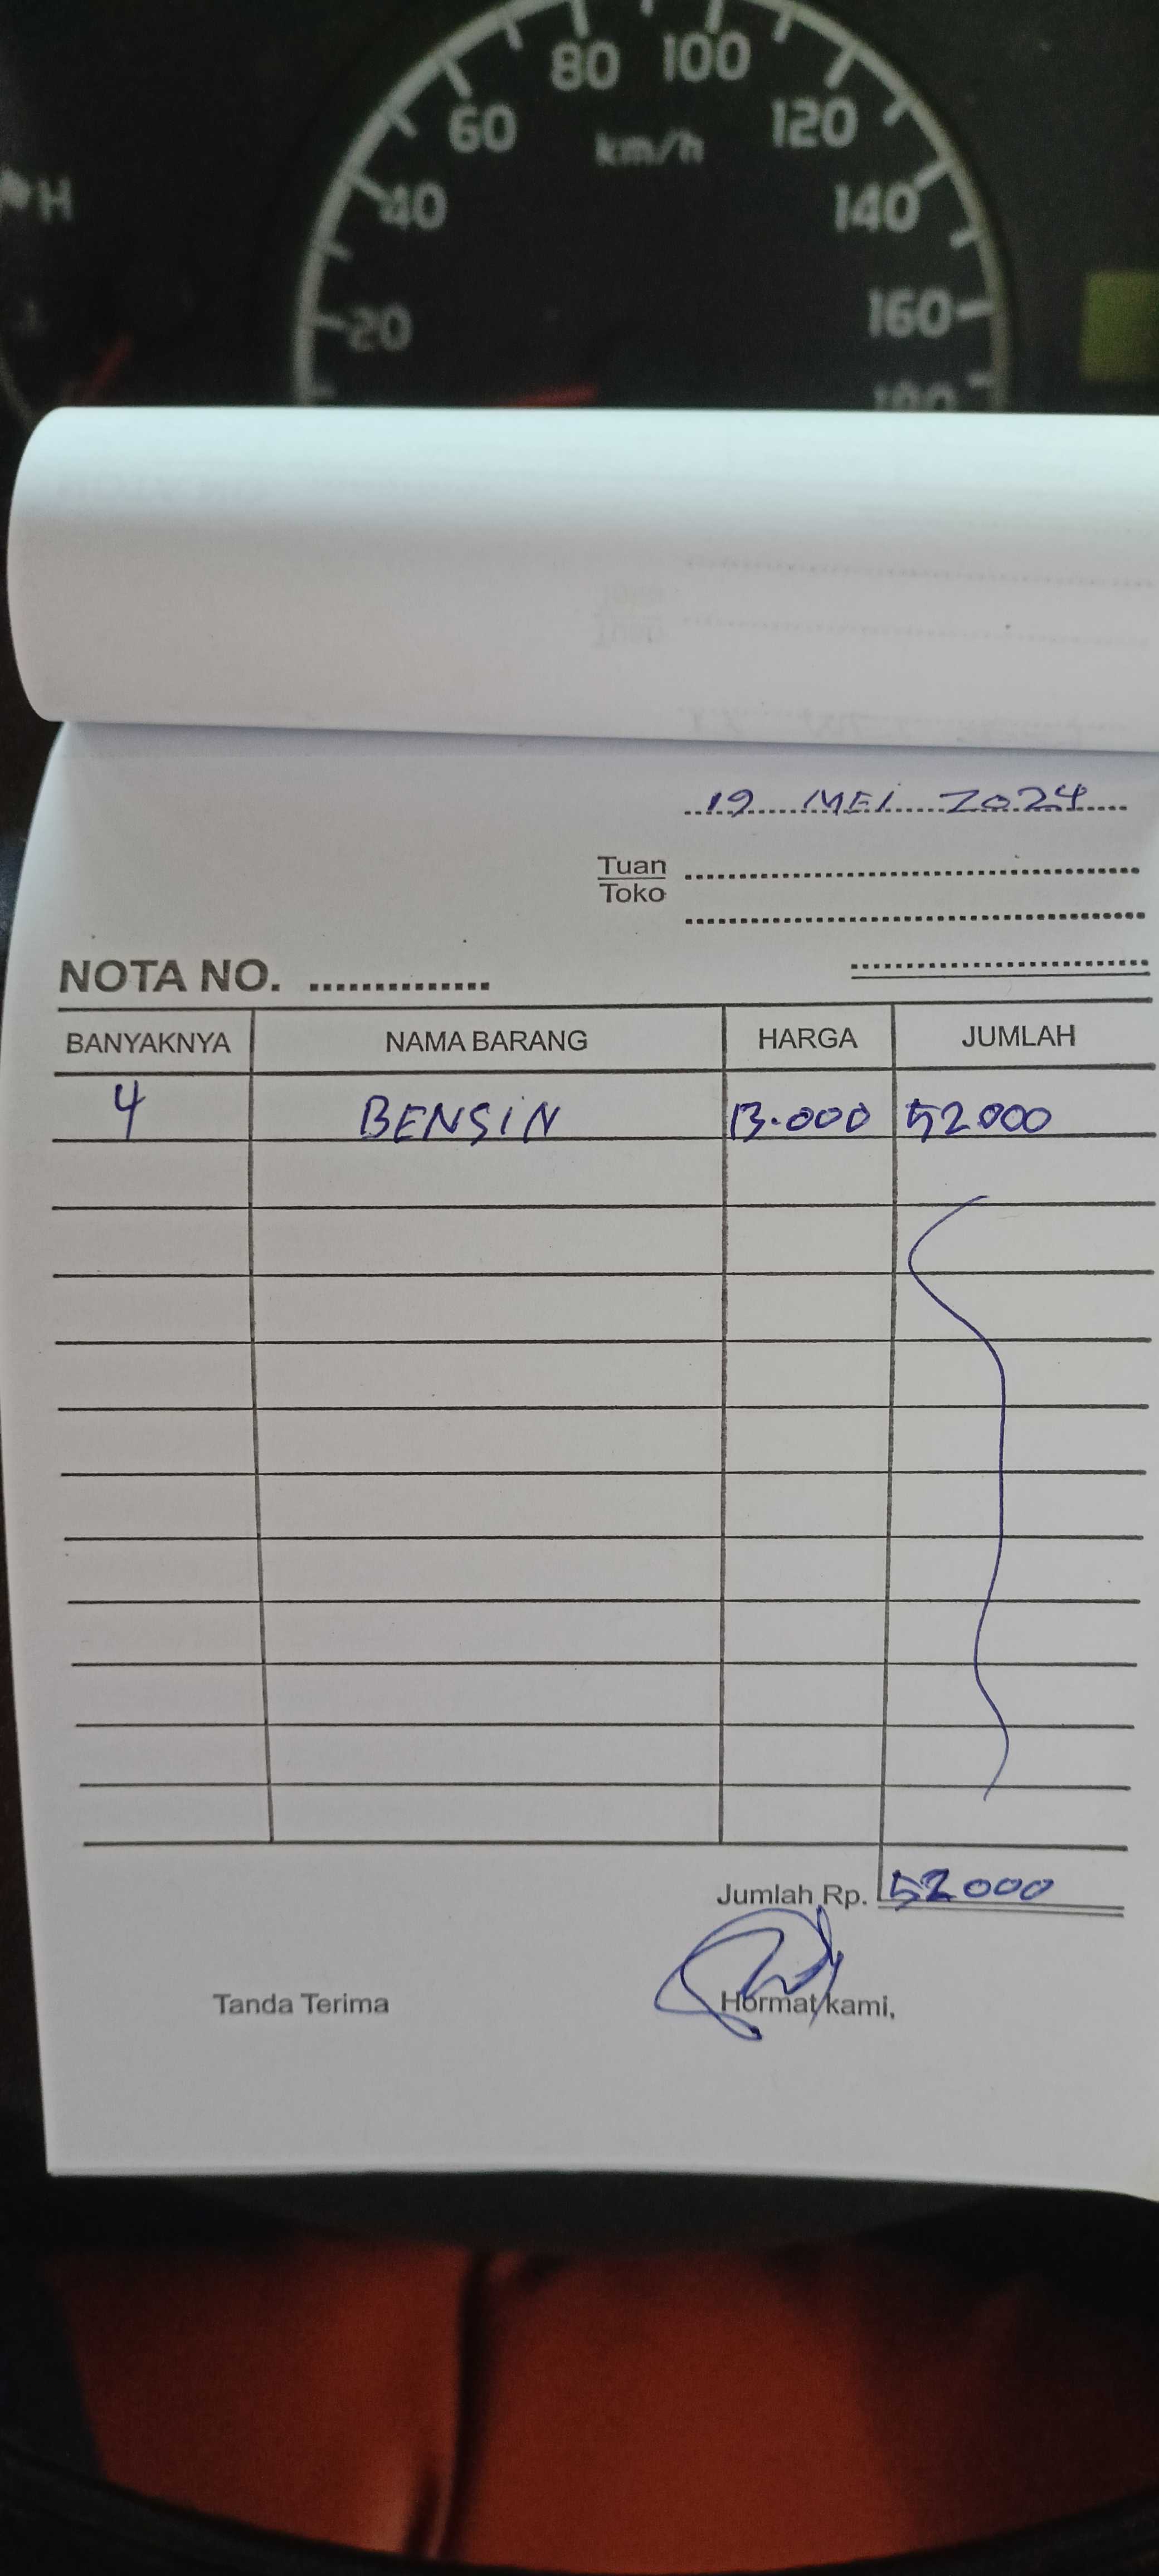 80 100
60 120
km/h
H 40 140
20 160
180
19 MEI 2024
Tuan
Toko
NOTA NO. ..............
BANYAKNYA NAMA BARANG HARGA JUMLAH
4 BENSIN 13.000 52000
Jumlah Rp. 52000
Tanda Terima Hormat kami,